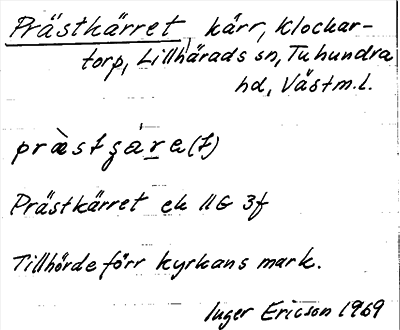 Prästkärret, kärr, Klockar-
torp, Lillhärads sn, Tuhundra
hd, Västm.l.
Prästkärret ek 11G 3f
Tillhörde förr kyrkans mark.
Inger Ericson 1969